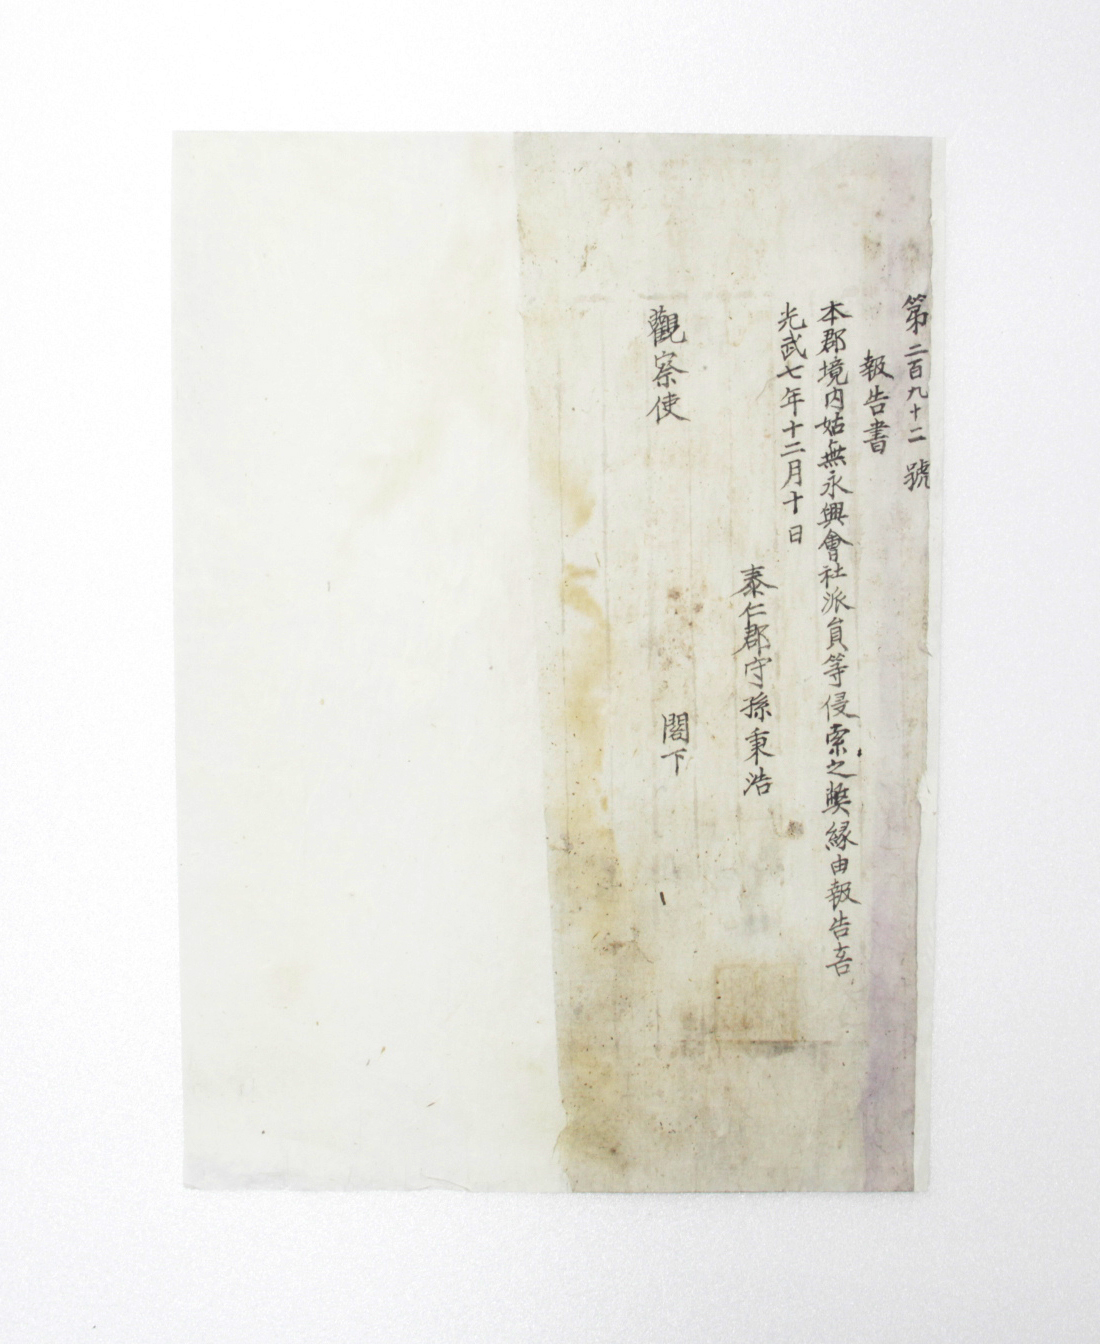 第二百九十二號
報告書
本郡境内姑無永興會社派員等侵索之弊緣由報告喜
光武七年十二月十日
泰仁郡守孫秉浩
觀察使 閣下